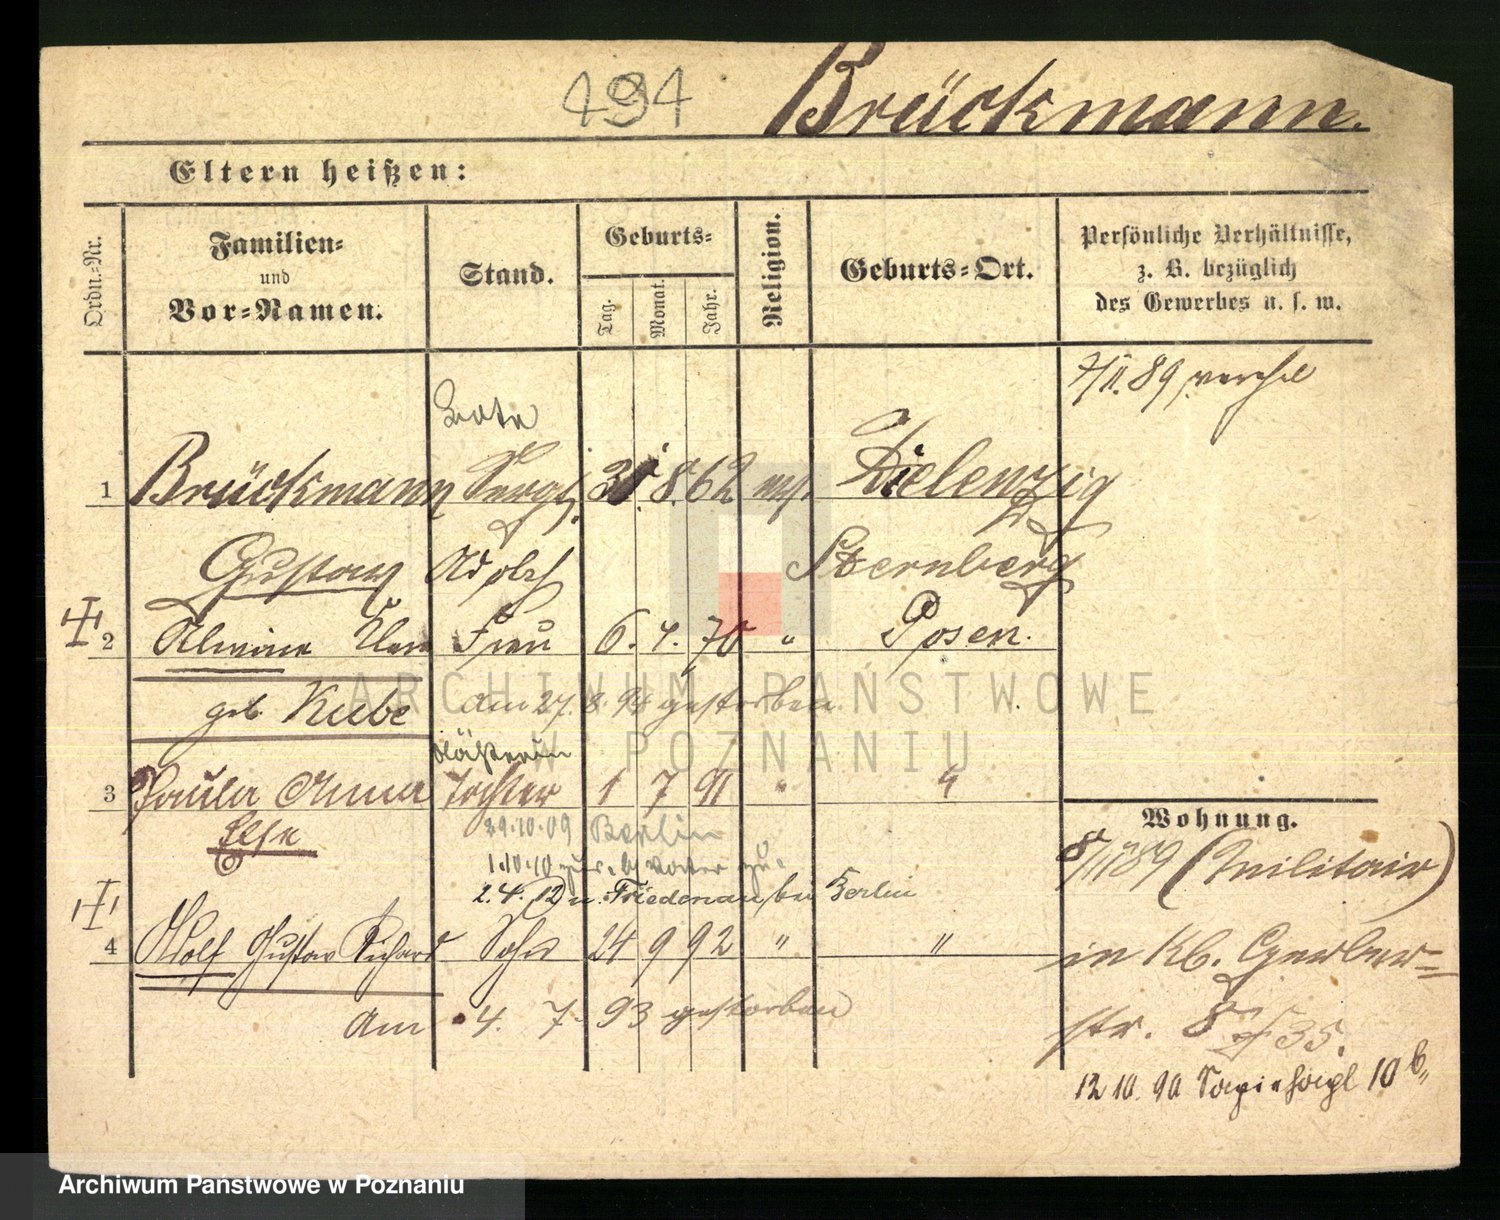 494 Brückmann.
Eltern heißen:
Ordn.-Nr.
Familien-
und
Vor-Namen.
Stand.
Geburts-
Tag.
Monat.
Jahr.
Religion.
Geburts-Ort.
Persönliche Verhältnisse,
z. B. bezüglich
des Gewerbes u. s. w.
7/11.89
1 Brückmann Sergt. 31. 8. 62 Zielenzig
Gustav Adolf Sternberg
2 Frau 6. 4. 70 " Posen.
geb. Kube am 27. 8. 94 gestorben
3 Paula Anna Tochter 1 7 91 " "
Else
29.10.09 Berlin
1.10.10
2.4.12 n. Friedenau bei Berlin
4 Adolf Gustav Richard Sohn 24 9 92 " "
Am 4. 7. 93 gestorben
Wohnung.
8/11 89 (Militair)
in Kb. Gerber-
str. 8
12 10. 90 10 b
ARCHIWUM PAŃSTWOWE
W POZNANIU
Archiwum Państwowe w Poznaniu